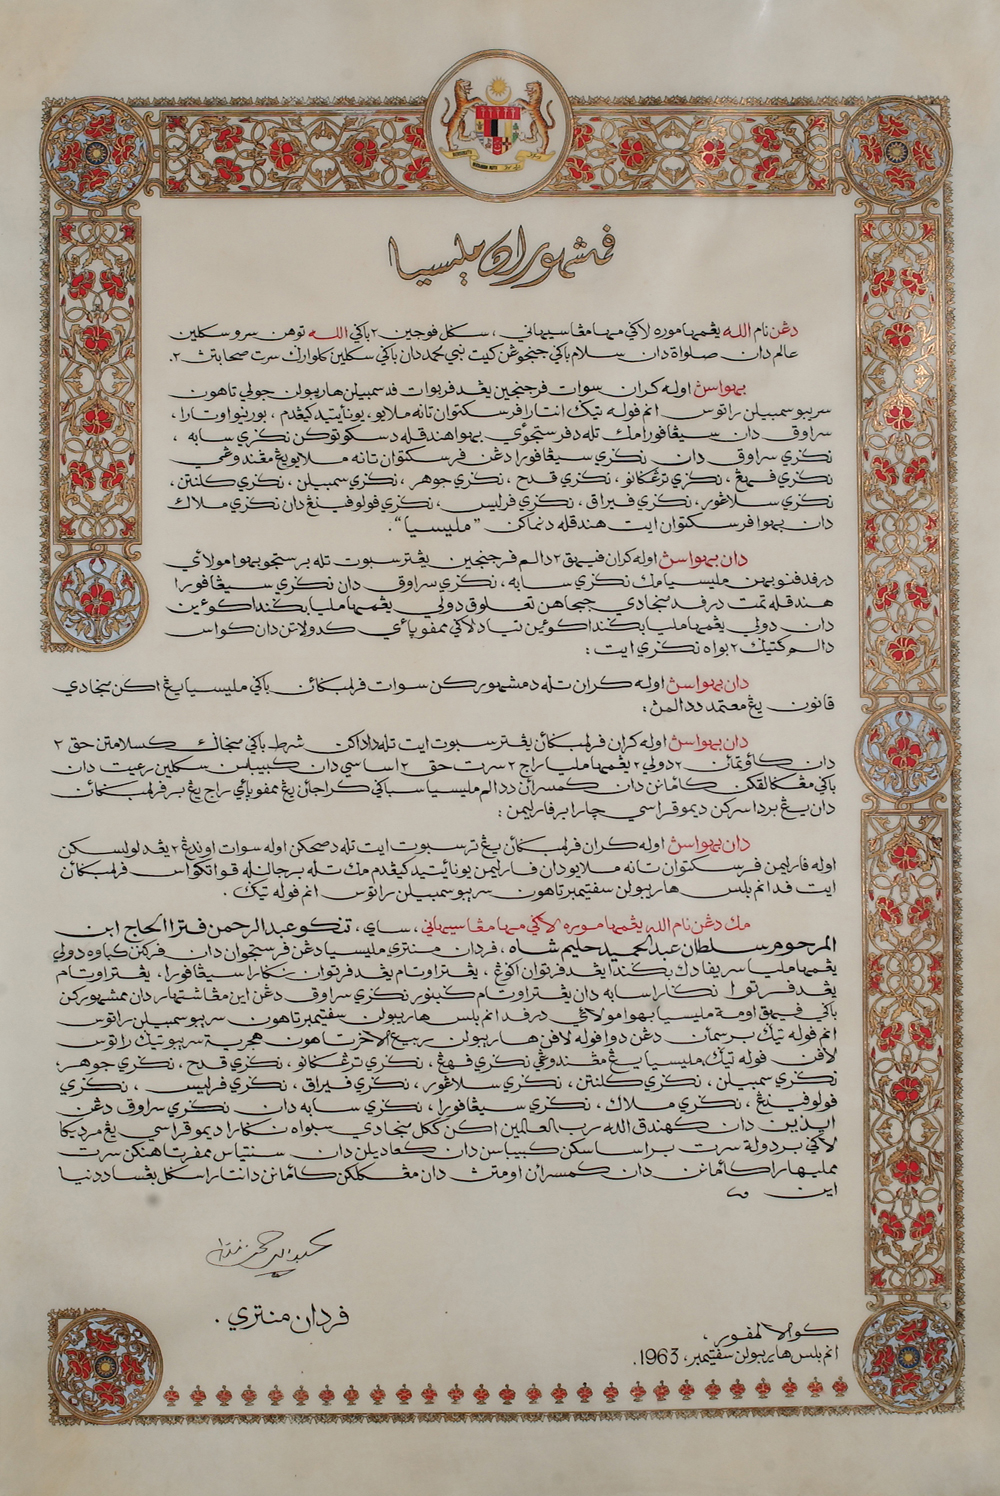 فمشهوران مليسيا
دڠن نام الله يڠمها موره لاݢي مها مڠاسيهاني، سݢل فوجين٢ باݢي الله توهن سرو سكلين
عالم دان صلواة دان سلام باݢي جنجوڠن كيت نبي محمد دان باݢي سكلين كلوارݢ سرت صحابتڽ٢.
بهواسڽ اوله كران سوات فرجنجين يڠد فربوات فد سمبيلن هاريبولن جولي تاهون
سريبو سمبيلن راتوس انم فوله تيݢ انتارا فرسكتوان تانه ملايو، يونايتيد كيڠدم، بورنيو اوتارا،
سراوق دان سيڠافورا مك تله دفرستجوٴي بهوا هندقله دسكوتوكن نݢري سابه،
نݢري سراوق دان نݢري سيڠافورا دڠن فرسكتوان تانه ملايو يڠ مڠندوڠي
نݢري فهڠ، نݢري ترڠݢانو، نݢري قدح، نݢري جوهر، نݢري سمبيلن، نݢري كلنتن،
نݢري سلاڠور، نݢري فيراق، نݢري فرليس، نݢري فولو فينڠ دان نݢري ملاك
دان بهوا فرسكتوان ايت هندقله دنماكن "مليسيا".
دان بهواسڽ اوله كران فيهق٢ دالم فرجنجين يڠترسبوت تله برستجو بهوا مولاءي
درفد فنوبوهن مليسيا مك نݢري سابه، نݢري سراوق دان نݢري سيڠافورا
هندقله تمت درفد منجادي ججاهن تعلوق دولي يڠمها مليا بݢندا كوئين
دان دولي يڠمها مليا بݢندا كوئين تياد لاݢي ممفوياٴي كدولاتن دان كواس
دالم كتيݢ٢ بواه نݢري ايت:
دان بهواسڽ اوله كران تله دمشهوركن سوات فرلمبݢاٴن باݢي مليسيا يڠ اكن منجادي
قانون يڠ معتمد ددالمڽ:
دان بهواسڽ اوله كران فرلمبݢاٴن يڠترسبوت ايت تله داداكن شرط باݢي منجاݢ كسلامتن حق٢
دان كأوتماٴن٢ دولي٢ يڠمها مليا راج٢ سرت حق٢ اساسي دان كبيبسن سكلين رعيت دان
باݢي مڠكالقكن كأمانن دان كمسراٴن ددالم مليسيا سباݢي كراجاٴن يڠ ممفوياٴي راج يڠ برفرلمبݢاٴن
دان يڠ برداسركن ديموقراسي چارا برفارليمن:
دان بهواسڽ اوله كران فرلمبݢاٴن يڠ ترسبوت ايت تله دصحكن اوله سوات اوندڠ٢ يڠد لولوسكن
اوله فارليمن فرسكتوان تانه ملايو دان فارليمن يونايتيد كيڠدم مك تله برجالنله قواتكواس فرلمبݢاٴن
ايت فد انم بلس هاريبولن سفتيمبر تاهون سريبو سمبيلن راتوس انم فوله تيݢ.
مك دڠن نام الله يڠمها موره لاݢي مها مڠاسيهاني، ساي، تنكو عبدالرحمن فترا الحاج ابن
المرحوم سلطان عبدالحميد حليم شاه، فردان منتري مليسيا دڠن فرستجوان دان فركنن كباوه دولي
يڠمها مليا سري فادك بݢندا يڠد فرتوان اݢوڠ، يڠترأوتام يڠد فرتوان نݢارا سيڠافورا، يڠترأوتام
يڠد فرتوا نݢارا سابه دان يڠترأوتام ݢبنور نݢري سراوق دڠن اين مڠاشتهار دان ممشهوركن
باݢي فيهق اومة مليسيا بهوا مولاءي درفد انم بلس هاريبولن سفتيمبر تاهون سريبو سمبيلن راتوس
انم فوله تيݢ برسمأن دڠن دوا فوله لافن هاريبولن ربيع الاخر تاهون هجرية سريبو تيݢ راتوس
لافن فوله تيݢ مليسيا يڠ مڠندوڠي نݢري فهڠ، نݢري ترڠݢانو، نݢري قدح، نݢري جوهر،
نݢري سمبيلن، نݢري كلنتن، نݢري سلاڠور، نݢري فيراق، نݢري فرليس، نݢري
فولو فينڠ، نݢري ملاك، نݢري سيڠافورا، نݢري سابه دان نݢري سراوق دڠن
ايذين دان كهندق الله رب العالمين اكن ككل منجادي سبواه نݢارا ديموقراسي يڠ مرديكا
لاݢي بردولة سرت براساسكن كبيباسن دان كعاديلن دان سنتياس ممفرتاهنكن سرت
مميهارا كأمانن دان كمسراٴن اومتڽ دان مڠكلكن كأمانن دانتارا سݢل بڠسا ددنيا
اين
فردان منتري.
كوالا لمفور،
انم بلس هاريبولن سفتيمبر، 1963.